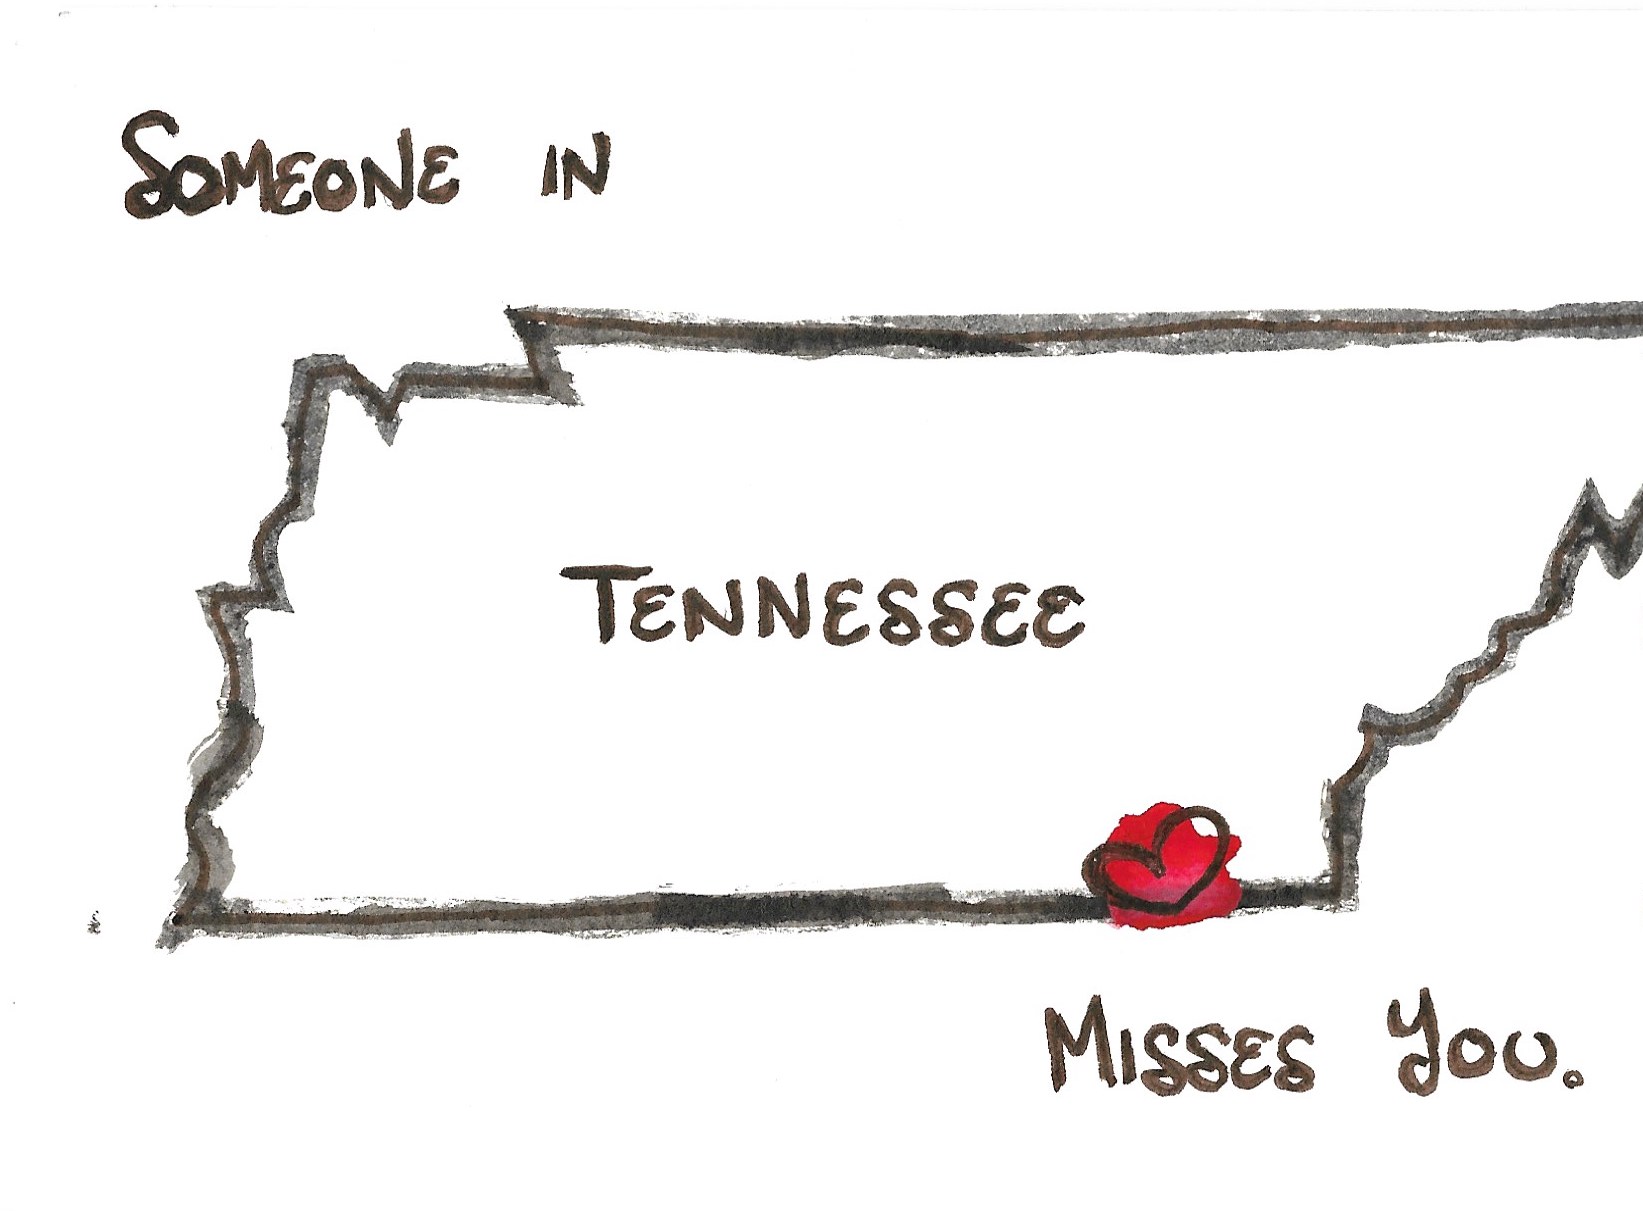 Someone in
Tennessee
Misses You.